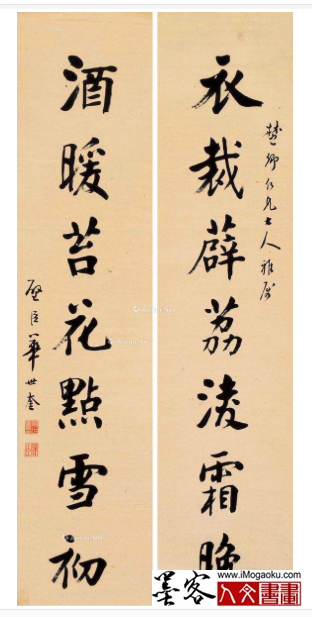 楚卿仁兄大人雅属
衣裁薜荔淩霜晚
酒暖苔花點雪初
壁臣華世奎
墨客
www.iMogaoku.com
人文書畫